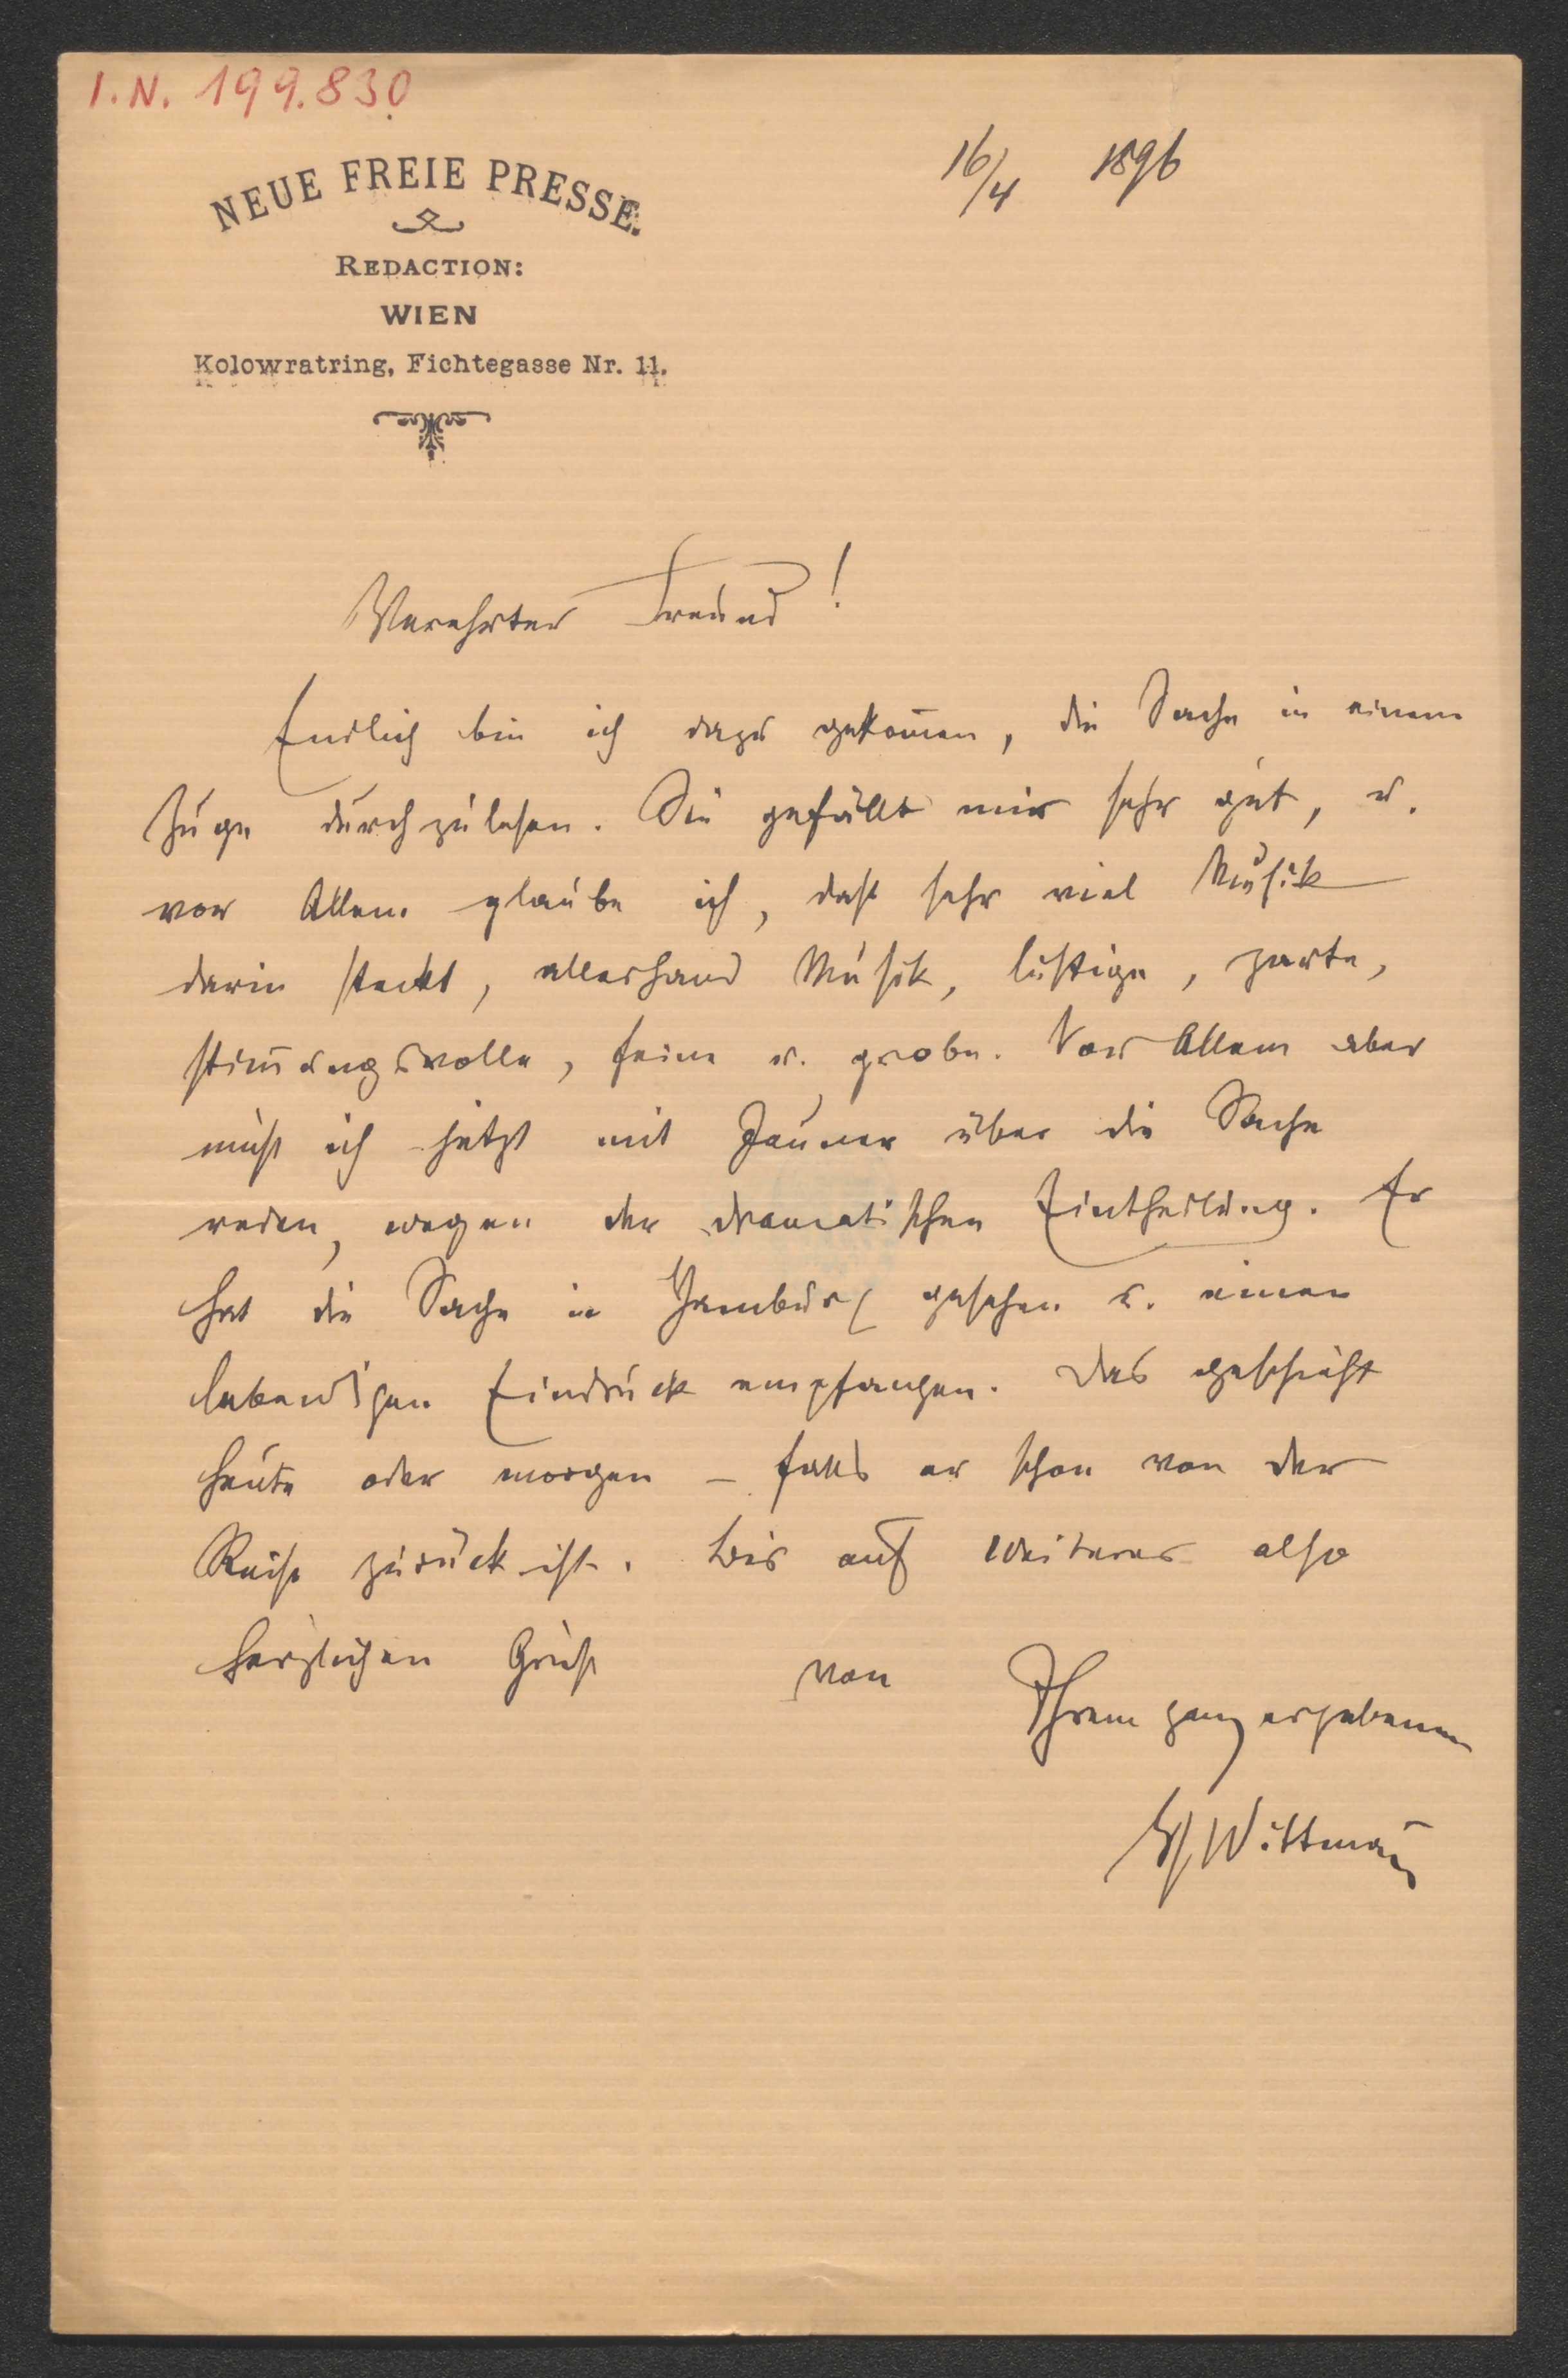 I.N. 199.830
NEUE FREIE PRESSE.
REDACTION:
WIEN
Kolowratring, Fichtegasse Nr. 11.
16/4 1896
Verehrter Freund!
Endlich bin ich dazu gekom̄en, die Sache in einem
Zuge durchzulesen. Sie gefällt mir sehr gut, u.
vor Allem glaube ich, daß sehr viel Musik
darin steckt, allerhand Musik, lustige, zarte,
stim̄ungsvolle, feine u. grobe. Vor Allem aber
muß ich jetzt mit Jauner über die Sache
reden, wegen der dramatischen Eintheilung. Er
hat die Sache in Hamburg gesehen u. einen
lebendigen Eindruck empfangen. Das geschieht
heute oder morgen – falls er schon von der
Reise zurück ist. Bis auf Weiteres also
herzlichen Gruß von Ihrem ganz ergebenen
Wittman̄